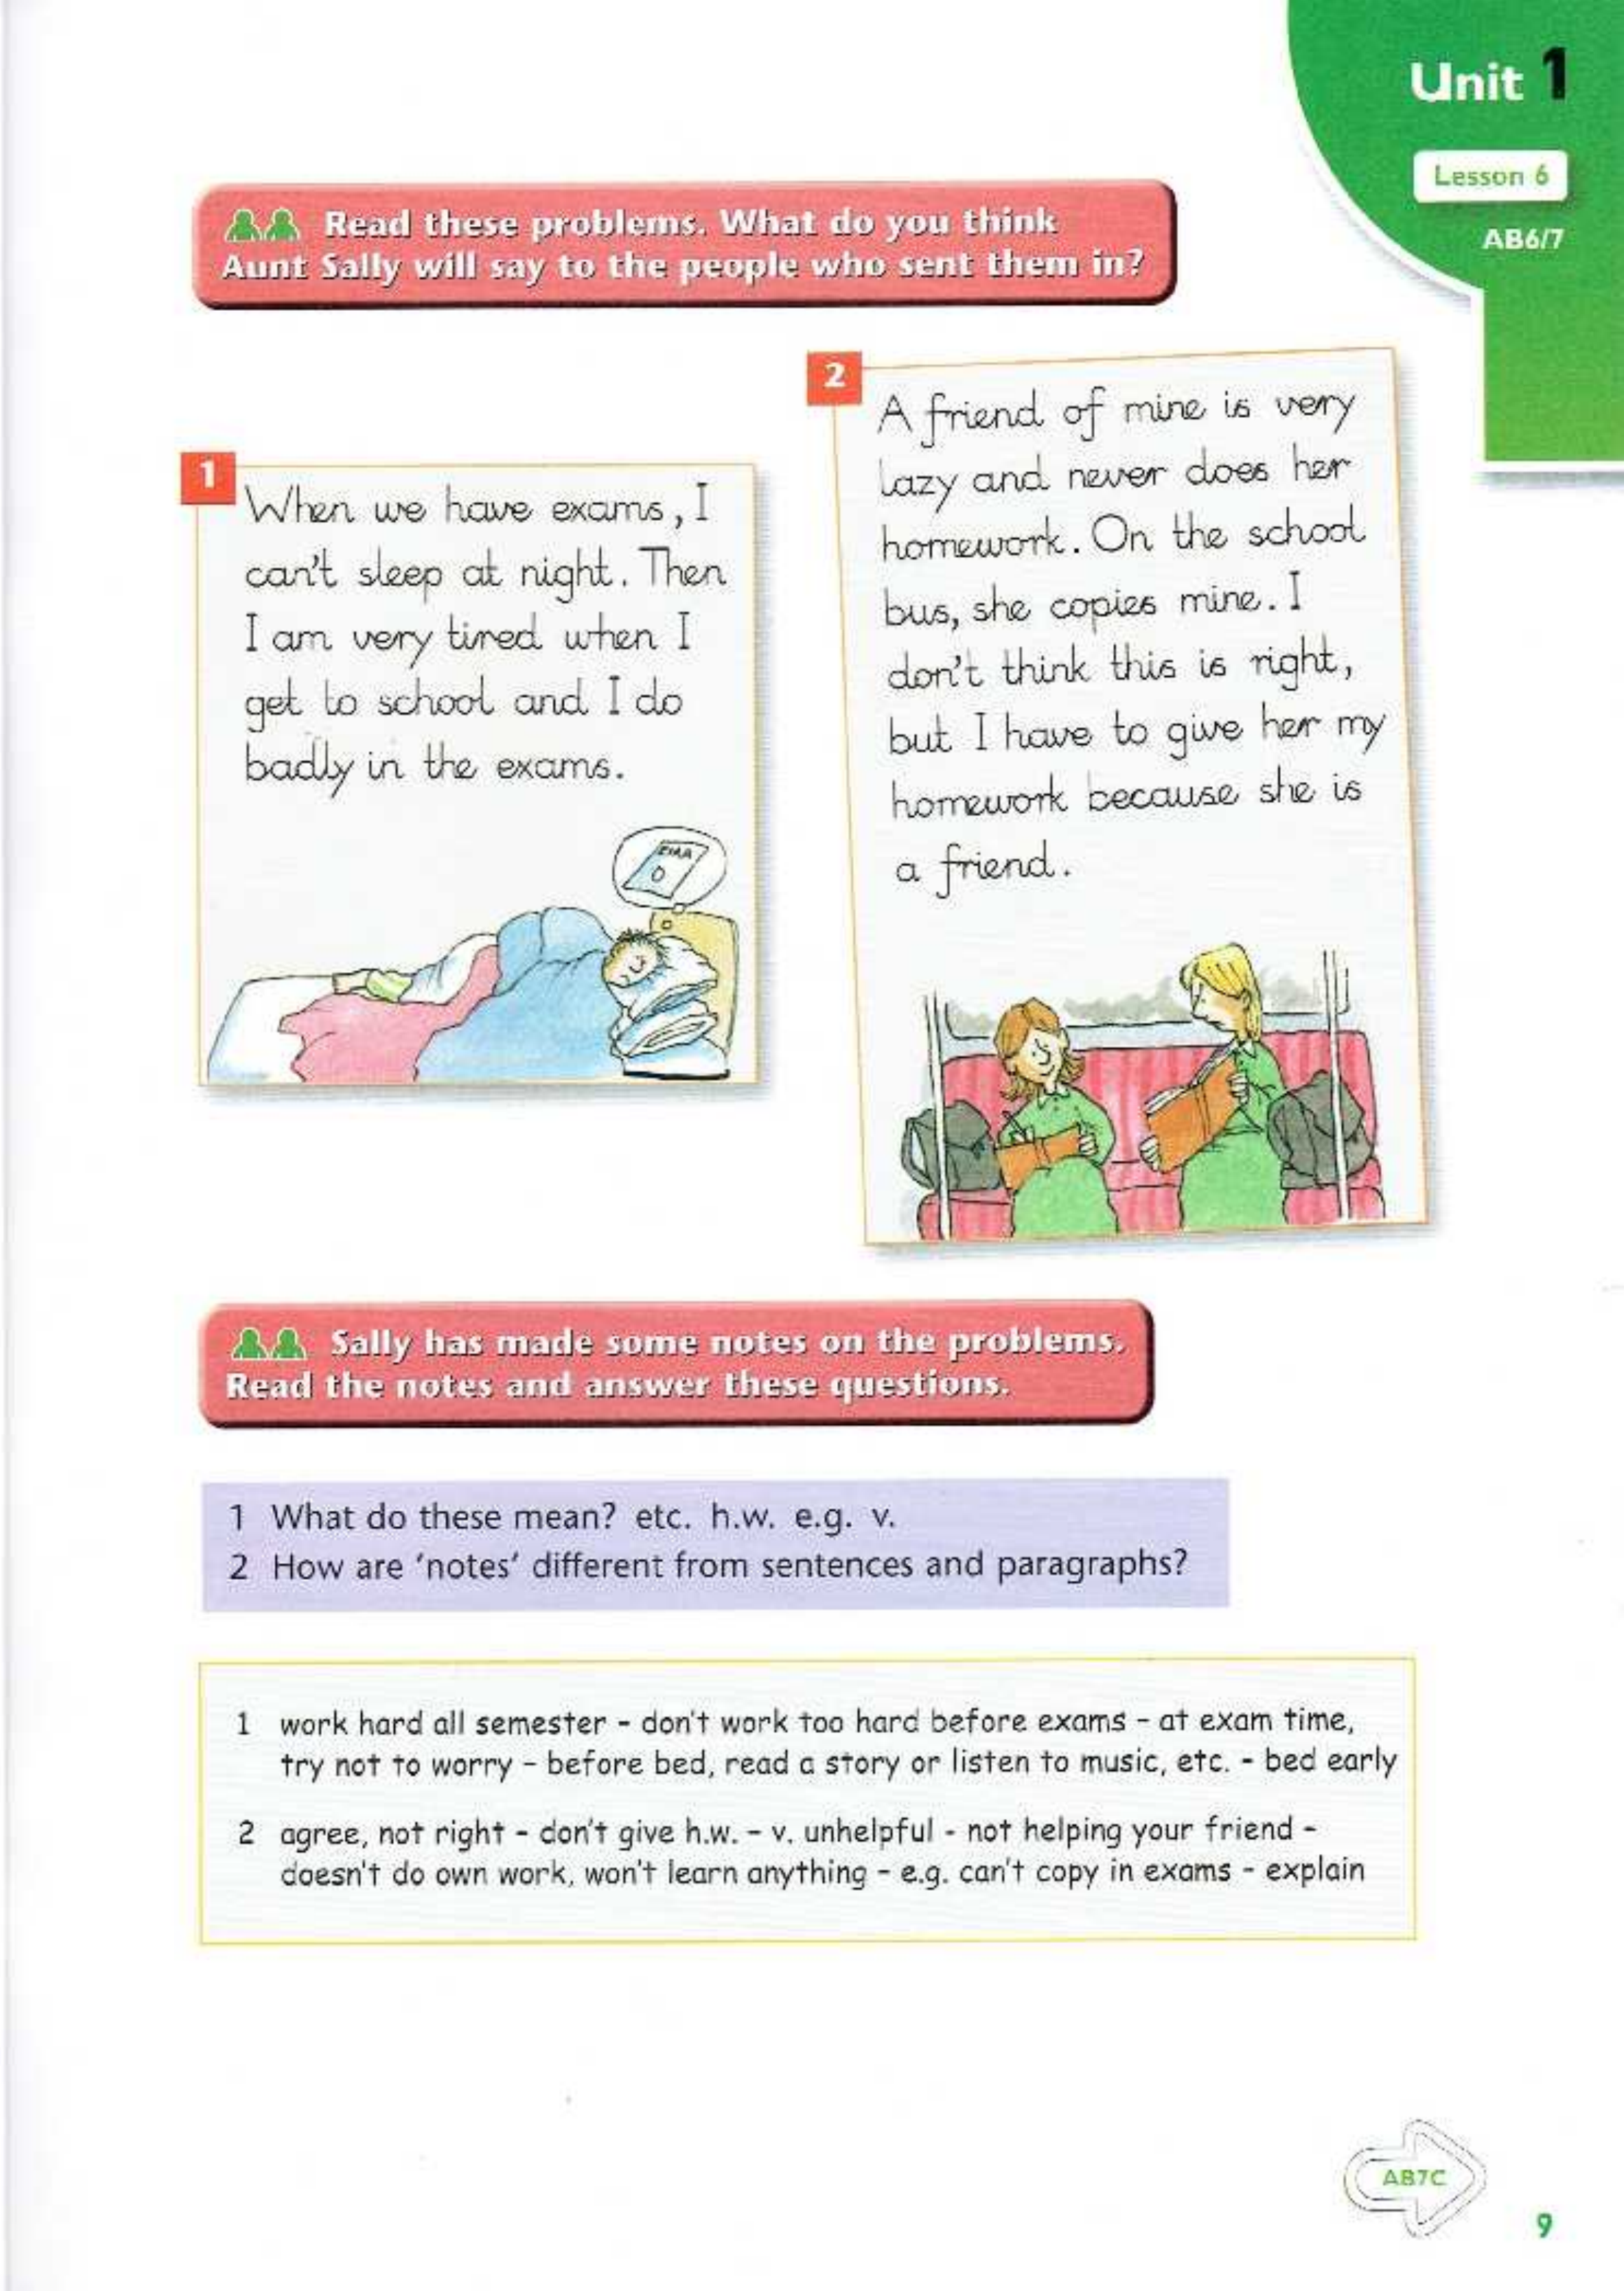 Unit 1
Lesson 6
AB6/7
Read these problems. What do you think
Aunt Sally will say to the people who sent them in?
1
When we have exams, I
can't sleep at night. Then
I am very tired when I
get to school and I do
badly in the exams.
2
A friend of mine is very
lazy and never does her
homework. On the school
bus, she copies mine. I
don't think this is right,
but I have to give her my
homework because she is
a friend.
Sally has made some notes on the problems.
Read the notes and answer these questions.
1 What do these mean? etc. h.w. e.g. v.
2 How are 'notes' different from sentences and paragraphs?
1 work hard all semester - don't work too hard before exams - at exam time,
try not to worry - before bed, read a story or listen to music, etc. - bed early
2 agree, not right - don't give h.w. - v. unhelpful - not helping your friend -
doesn't do own work, won't learn anything - e.g. can't copy in exams - explain
AB7C
9